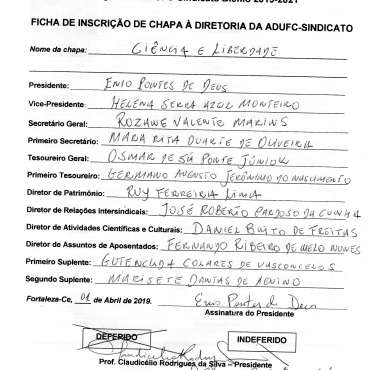 2019-2021
FICHA DE INSCRIÇÃO DE CHAPA À DIRETORIA DA ADUFC-SINDICATO
Nome da chapa: CIÊNCIA E LIBERDADE
Presidente: ENIO PONTES DE DEUS
Vice-Presidente: HELENA SERRA AZUL MONTEIRO
Secretário Geral: ROZANE VALENTE MARINS
Primeiro Secretário: MARA RITA DUARTE DE OLIVEIRA
Tesoureiro Geral: OSMAR DE SÁ PONTE JÚNIOR
Primeiro Tesoureiro: GERMANO AUGUSTO JERÔNIMO DO NASCIMENTO
Diretor de Patrimônio: RUY FERREIRA LIMA
Diretor de Relações Intersindicais: JOSÉ ROBERTO CARDOSO DA CUNHA
Diretor de Atividades Científicas e Culturais: DANIEL BRITO DE FREITAS
Diretor de Assuntos de Aposentados: FERNANDO RIBEIRO DE MELO NUNES
Primeiro Suplente: COLARES DE VASCONCELOS
Segundo Suplente: MARISETE DANTAS DE AQUINO
Fortaleza-Ce, 01 de Abril de 2019. Enio Pontes de Deus
Assinatura do Presidente
DEFERIDO INDEFERIDO
Prof. Claudicélio Rodrigues da Silva – Presidente